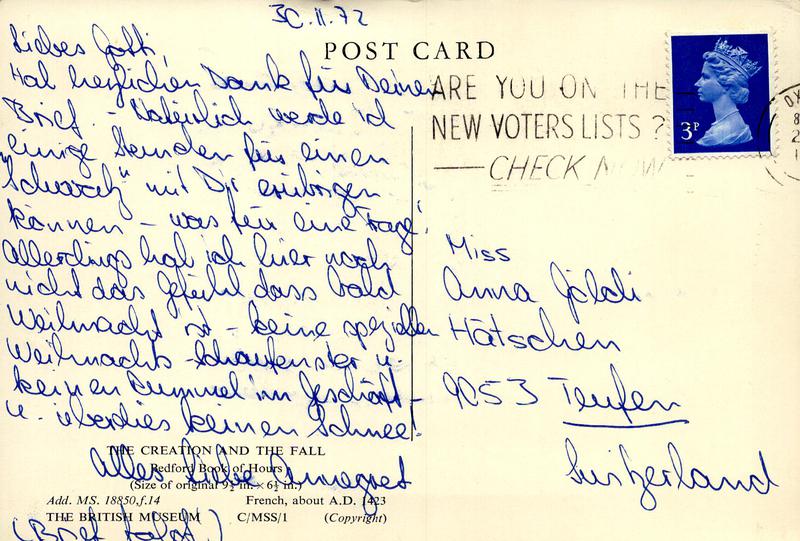 30.11.72
POST CARD
Liebes Gotti,
Hab herzlichen Dank für Deinen
Brief. - Natürlich werde ich
einige Stunden für einen
"Schwatz" mit Dir erübrigen
können - was für eine Frage!
Allerdings hab ich hier noch
nicht das Gefühl dass bald
Weihnacht ist - keine speziellen
Weihnachts-Schaufenster u.
keinen Rummel im Geschäft -
u. überdies keinen Schnee!
Alles Liebe Annegret
(Brief folgt!)
ARE YOU ON THE
NEW VOTERS LISTS?
CHECK NOW
3P
Miss
Anna Göldi
Hätschen
9053 Teufen
Switzerland
THE CREATION AND THE FALL
Bedford Book of Hours
(Size of original 9½ in. × 6½ in.)
Add. MS. 18850,f.14 French, about A.D. 1423
THE BRITISH MUSEUM C/MSS/1 (Copyright)